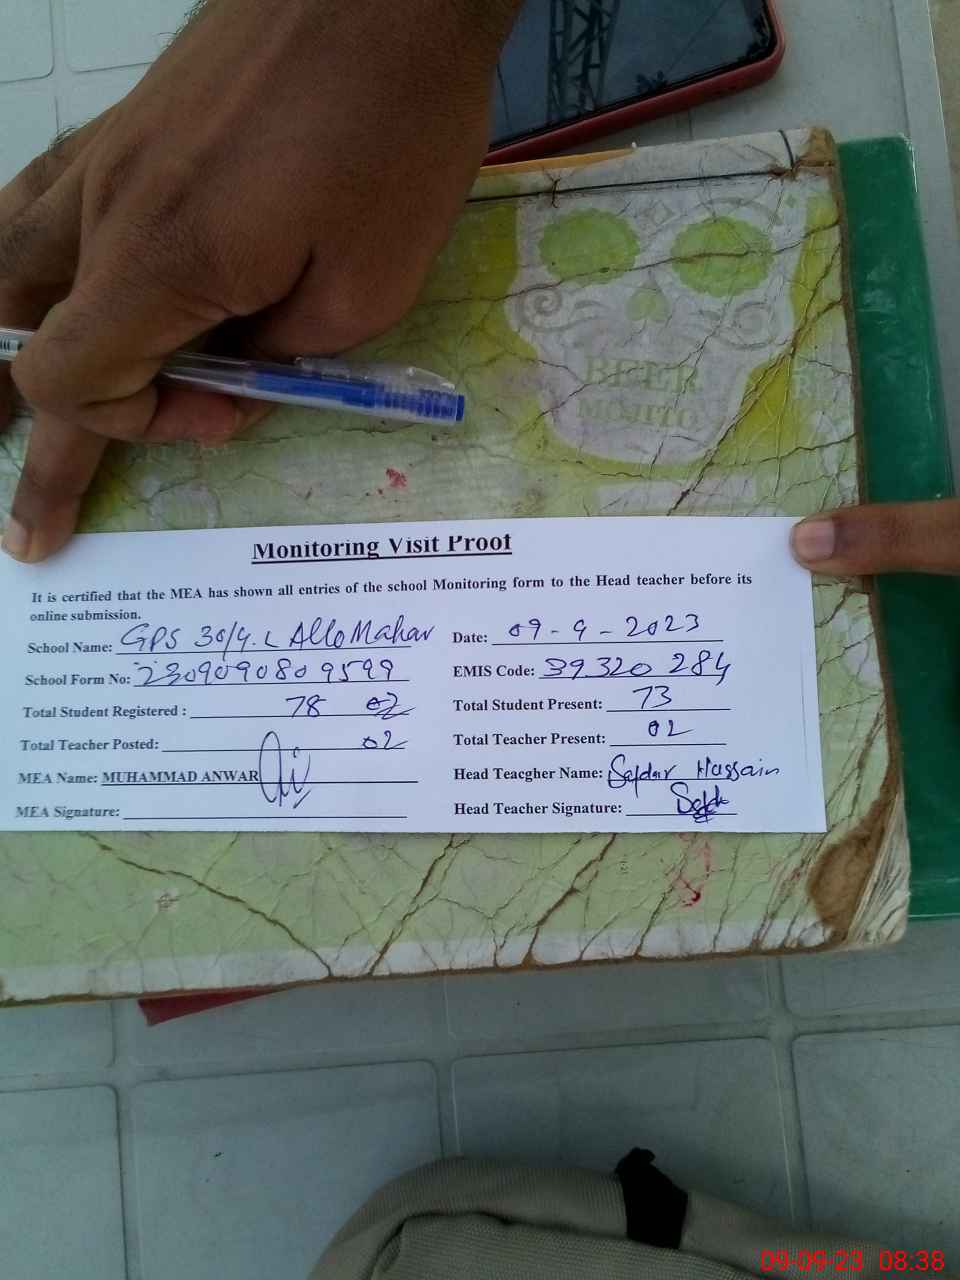 BEER
MOJITO
Monitoring Visit Proof
It is certified that the MEA has shown all entries of the school Monitoring form to the Head teacher before its
online submission.
School Name: GPS 30/4.L Allo Mahar Date: 09-9-2023
School Form No: 2309090809599 EMIS Code: 39320284
Total Student Registered : 78 02 Total Student Present: 73
Total Teacher Posted: 02 Total Teacher Present: 02
MEA Name: MUHAMMAD ANWAR Head Teacgher Name: Safdar Hussain
MEA Signature: Head Teacher Signature:
09-09-23 08:38